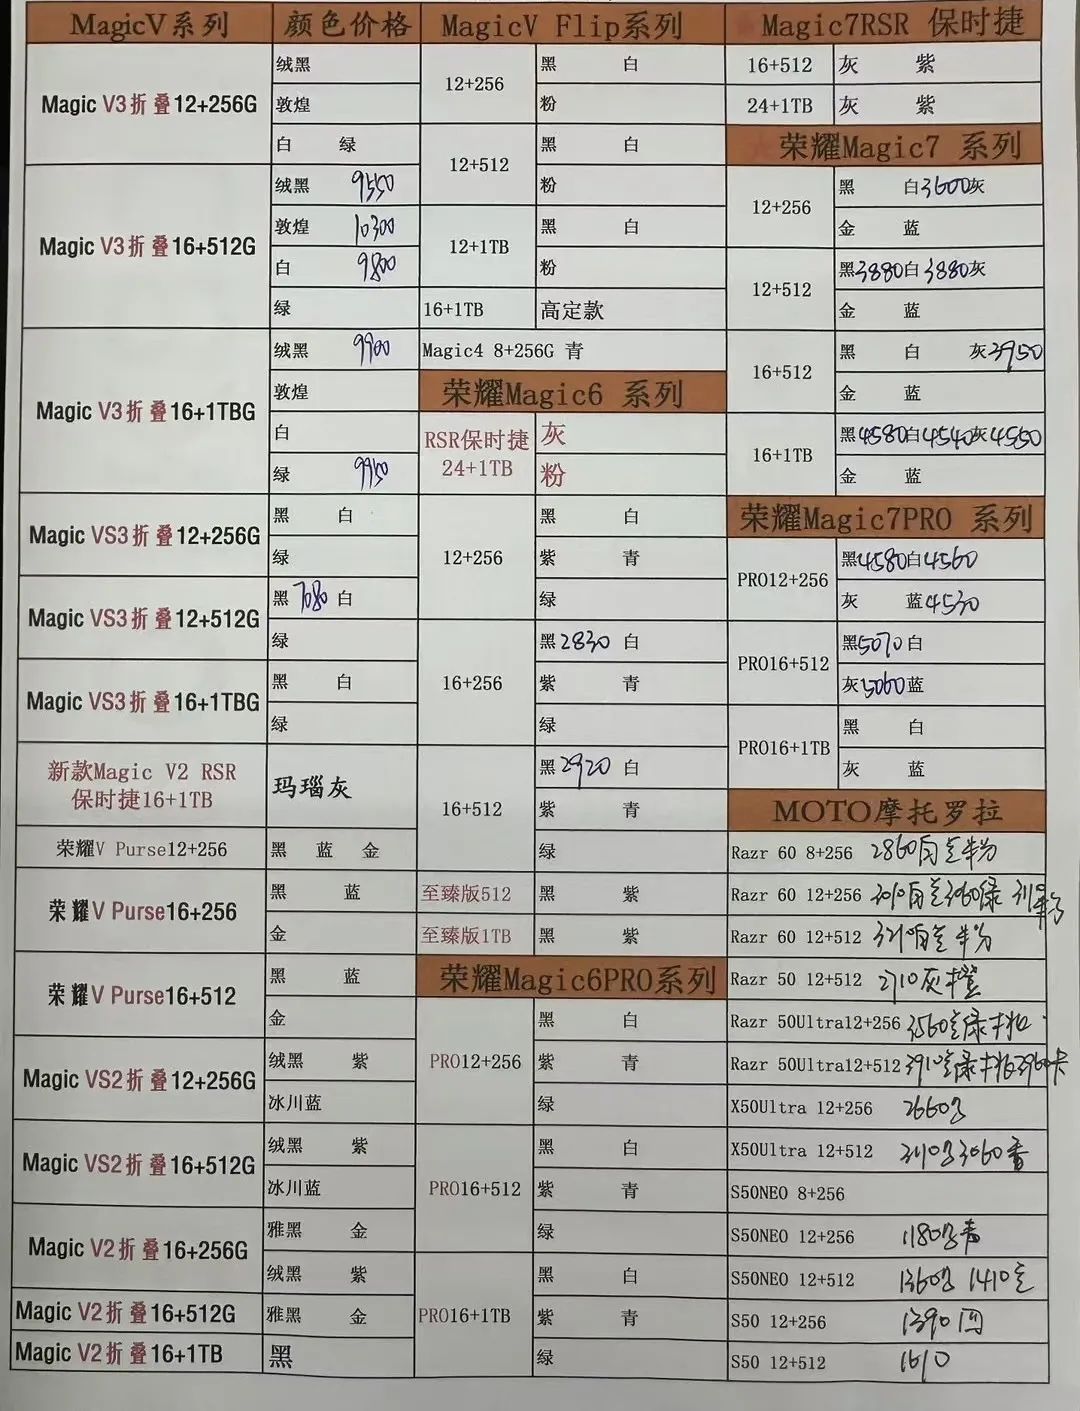 MagicV系列 颜色价格
Magic V3折叠12+256G
绒黑
敦煌
白 绿
Magic V3折叠16+512G
绒黑 9550
敦煌 10300
白 9800
绿
Magic V3折叠16+1TBG
绒黑 9900
敦煌
白
绿 9950
Magic VS3折叠12+256G
黑 白
绿
Magic VS3折叠12+512G
黑 7080 白
绿
Magic VS3折叠16+1TBG
黑 白
绿
新款Magic V2 RSR
保时捷16+1TB
玛瑙灰
荣耀V Purse12+256
黑 蓝 金
荣耀V Purse16+256
黑 蓝
金
荣耀V Purse16+512
黑 蓝
金
Magic VS2折叠12+256G
绒黑 紫
冰川蓝
Magic VS2折叠16+512G
绒黑 紫
冰川蓝
Magic V2折叠16+256G
雅黑 金
绒黑 紫
Magic V2折叠16+512G
雅黑 金
Magic V2折叠16+1TB
黑
MagicV Flip系列
12+256
黑 白
粉
12+512
黑 白
粉
12+1TB
黑 白
粉
16+1TB 高定款
Magic4 8+256G 青
荣耀Magic6 系列
RSR保时捷
24+1TB
灰
粉
12+256
黑 白
紫 青
绿
16+256
黑 2830 白
紫 青
绿
16+512
黑 2920 白
紫 青
绿
至臻版512 黑 紫
至臻版1TB 黑 紫
荣耀Magic6PRO系列
PRO12+256
黑 白
紫 青
绿
PRO16+512
黑 白
紫 青
绿
PRO16+1TB
黑 白
紫 青
绿
Magic7RSR 保时捷
16+512 灰 紫
24+1TB 灰 紫
荣耀Magic7 系列
12+256
黑 白3600灰
金 蓝
12+512
黑3880白3880灰
金 蓝
16+512
黑 白 灰3950
金 蓝
16+1TB
黑4580白4540灰4550
金 蓝
荣耀Magic7PRO 系列
PRO12+256
黑4580白4560
灰 蓝4530
PRO16+512
黑5070白
灰5060蓝
PRO16+1TB
黑 白
灰 蓝
MOTO摩托罗拉
Razr 60 8+256 2860
Razr 60 12+256 3060绿
Razr 60 12+512 3210
Razr 50 12+512 2710灰橙
Razr 50Ultra12+256 3560
Razr 50Ultra12+512 3910
X50Ultra 12+256 2660
X50Ultra 12+512 3060
S50NEO 8+256
S50NEO 12+256 1180
S50NEO 12+512 1360 1410
S50 12+256 1390
S50 12+512 1610